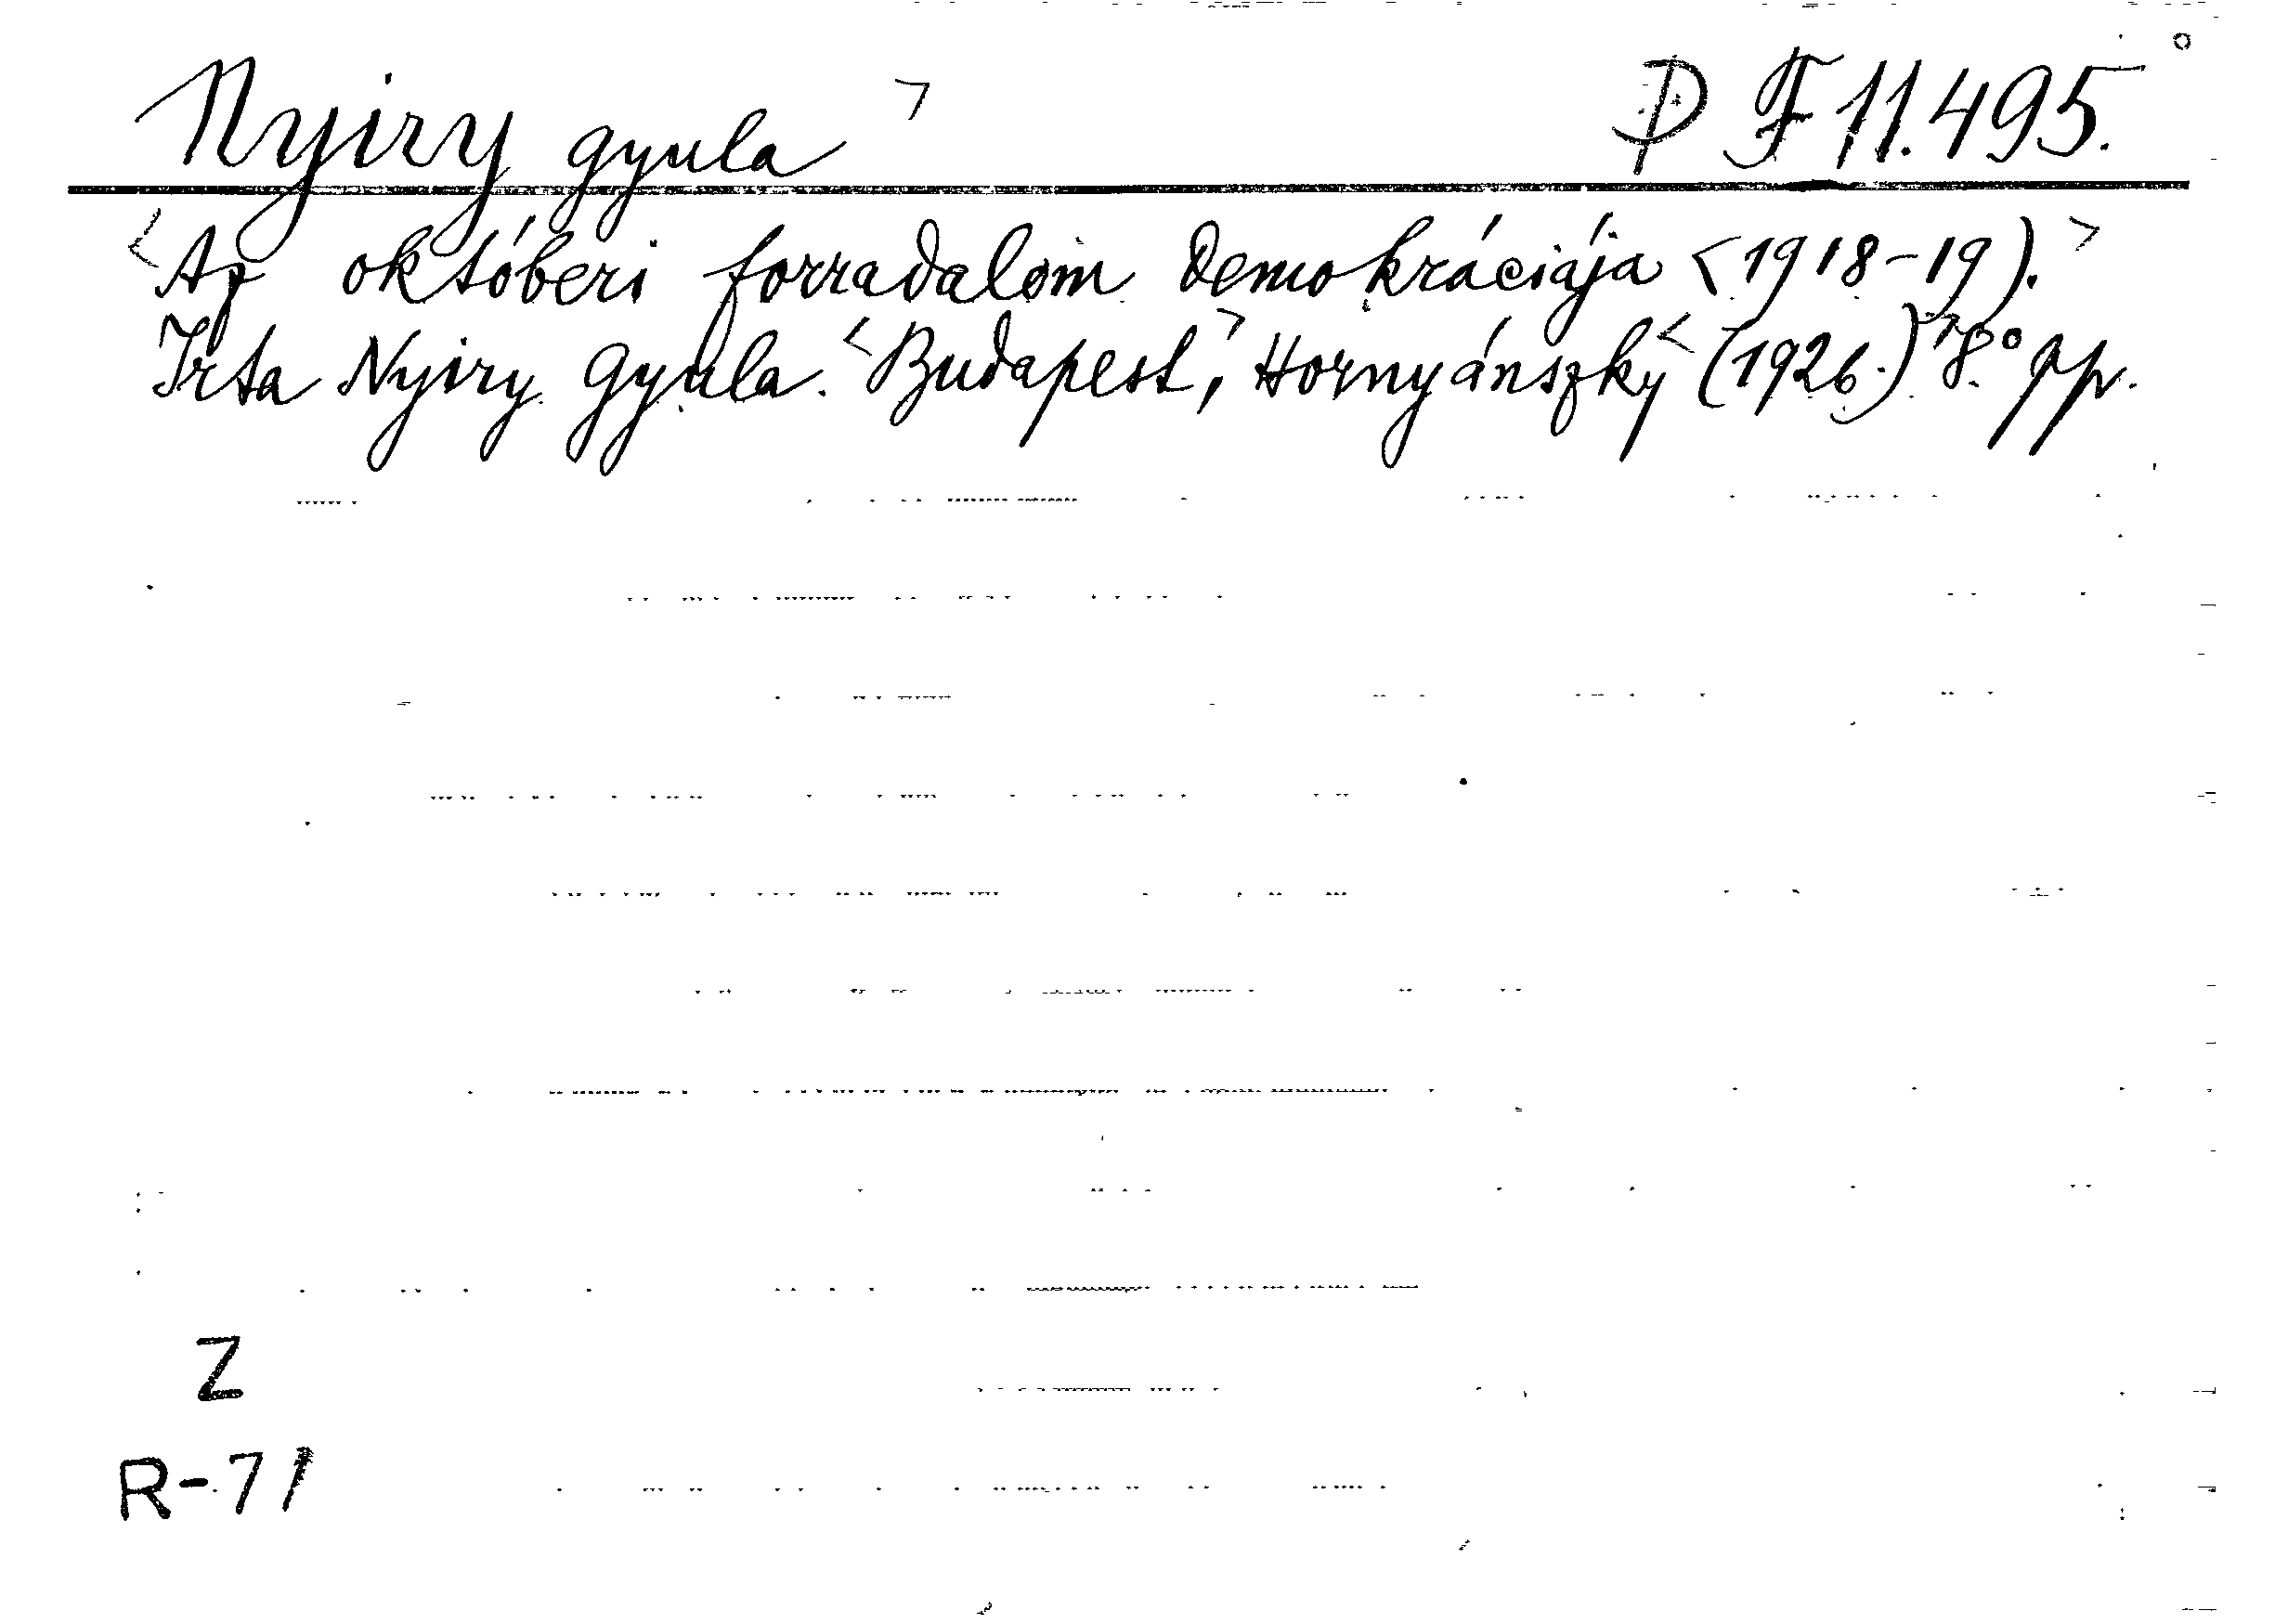 Nyiry Gyula > D F 11.495.
<Az októberi forradalom demokráciája <1918-19).>
Irta Nyiry Gyula. <Budapest,> Hornyánszky <(1926.)> 8° 9 p.
Z
R-71